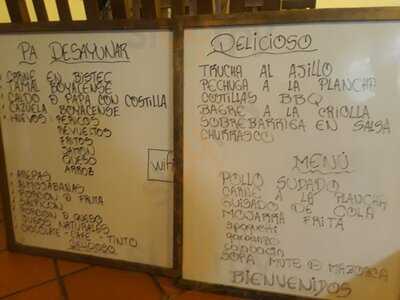 PA DESAYUNAR
CARNE EN BISTEC
TAMAL BOYACENSE
CALDO D PAPA CON COSTILLA
CAZUELA BOYACENSE
HUEVOS: PERICOS
REVUELTOS
FRITOS
JAMON
QUESO
ARROZ
AREPAS
ALMOJABANAS
PORCION D FRUTA
SALPICON
PORCION D QUESO
JUGOS NATURALES
CHOCOLATE - CAFE - TINTO
Wifi
DELICIOSO
TRUCHA AL AJILLO
PECHUGA A LA PLANCHA
COSTILLAS BBQ
BAGRE A LA CRIOLLA
SOBREBARRIGA EN SALSA
CHURRASCO
MENÚ
POLLO SUDADO
CARNE A LA PLANCHA
GUISADO DE COLA
MOJARRA FRITA
SPAGUETI
GARBANZO
SOPA MUTE D MAZORCA
BIENVENIDOS